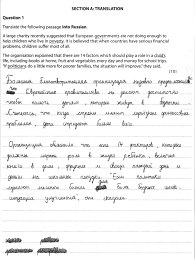 SECTION A: TRANSLATION
Question 1
Translate the following passage into Russian.
A large charity recently suggested that European governments are not doing enough to
help children who live in poverty. It is believed that when countries have serious financial
problems, children suffer most of all.
The organisation established that there are 14 factors which should play a role in a child's
life, including books at home, fruit and vegetables every day and money for school trips.
"If politicians do a little more for poorer families, the situation will improve," they said.
(10)
Большая благотворительная организация недавно
что Европейские правительства не делают достаточно
чтобы помочь детям которые живут в бедности.
Считается, что когда страны имеют серьёзные финансовые
проблемы, дети страдают больше всего.
Организация
что есть 14 факторов, которые
должны играть роль в жизни ребёнка, включая
книги в доме, фрукты и овощи каждый день и
деньги на школьные поездки. "Если политики
сделают немного больше для более бедных семей,
ситуация улучшится", они сказали.